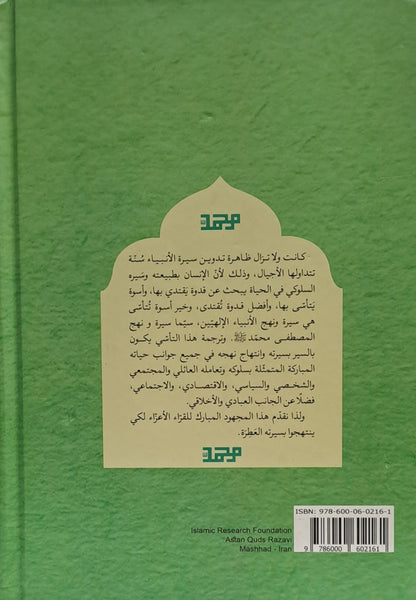 محمد
كانت ولا تزال ظاهرة تدوين سيرة الأنبياء سُنّة
تتداولها الأجيال، وذلك لأنّ الإنسان بطبيعته وسَيره
السلوكي في الحياة يبحث عن قدوة يَقتدي بها، وأسوة
يَتأسّى بها، وأفضل قدوة تُقتدى، وخير أسوة تُتأسّى
هي سيرة ونهج الأنبياء الإلهيّين، سيّما سيرة و نهج
المصطفى محمّد ﷺ. وترجمة هذا التأسّي يكون
بالسير بسيرته وانتهاج نهجه في جميع جوانب حياته
المباركة المتمثّلة بسلوكه وتعامله العائلي والمجتمعي
والشخصي والسياسي، والاقتصادي، والاجتماعي،
فضلًا عن الجانب العبادي والأخلاقي.
ولذا نقدّم هذا المجهود المبارك للقرّاء الأعزّاء لكي
ينتهجوا بسيرته العَطِرَة.
محمد
ISBN: 978-600-06-0216-1
Islamic Research Foundation
Astan Quds Razavi
Mashhad - Iran
9 786000 602161